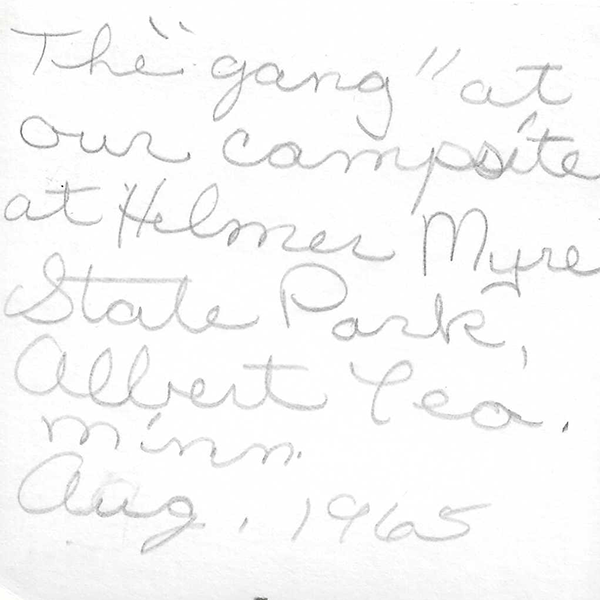 The "gang" at
our campsite
at Helmer Myre
State Park,
Albert Lea.
Minn.
Aug. 1965